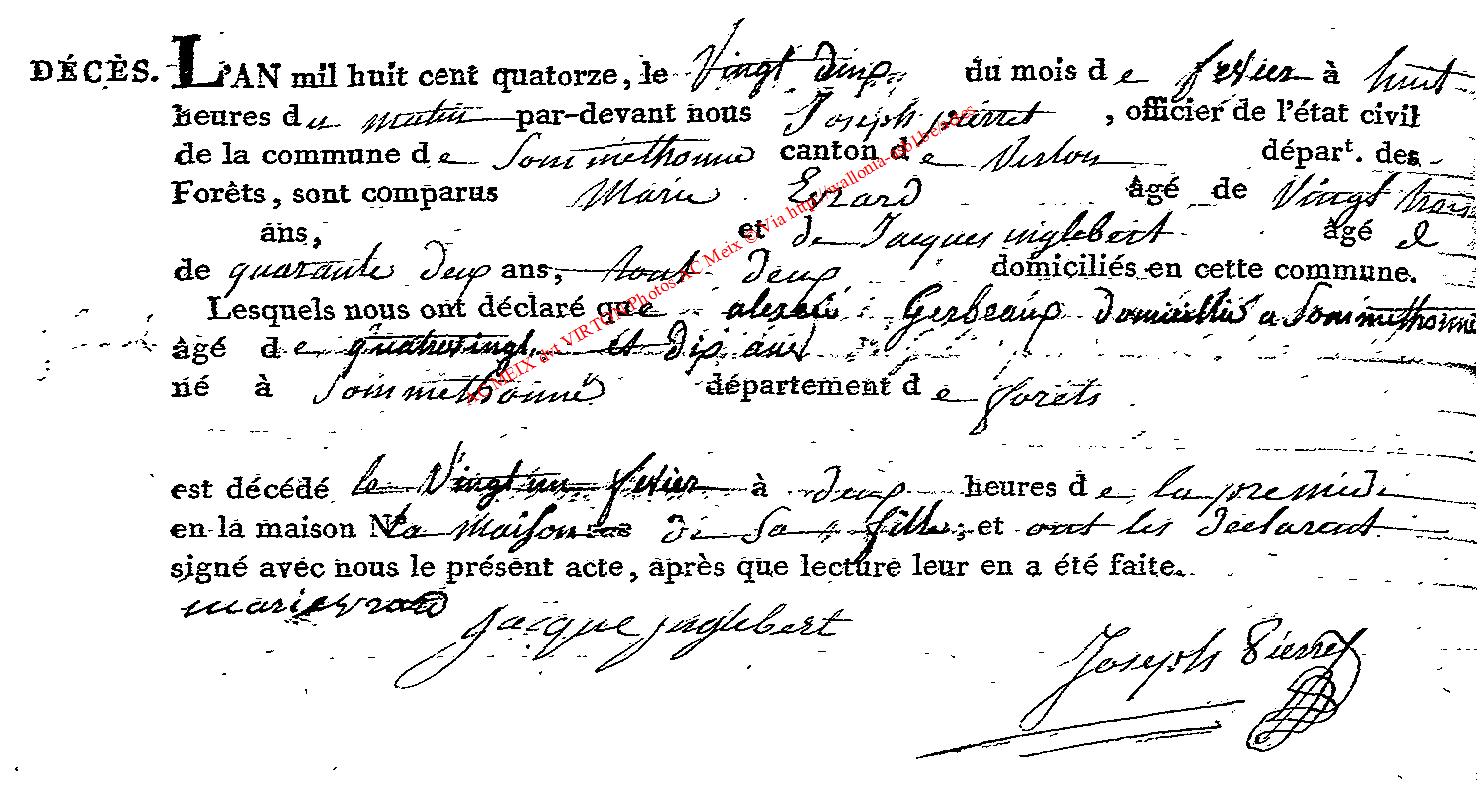 DÉCÈS. L'AN mil huit cent quatorze, le Vingt deux du mois de fevier à huit
heures du matin par-devant nous Joseph pierret , officier de l'état civil
de la commune de Sommethonne canton de Virton départ. des
Forêts, sont comparus Marie Evrard âgé de Vingt trois
ans, et de Jacques inglebert âgé
de quarante deux ans, tout deux domiciliés en cette commune.
Lesquels nous ont déclaré que alexci Gerbeaux domicillié a Sommethonne
âgé de quatrevingt et dix ans
né à Sommethonne département de forets
est décédé le Vingt un fevier à deux heures de la
en la maison N° la maison de sa fille, et ont les declarent
signé avec nous le présent acte, après que lecture leur en a été faite.
marie evrard
Jacque jnglebert
Joseph Pierret
AC MEIX dvt VIRTON Photos AC Meix © Via http://wallonia-